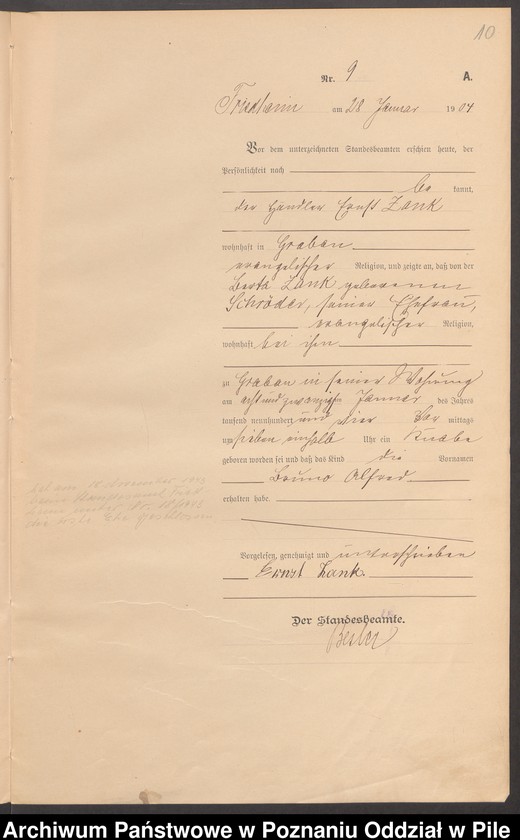 10
Nr. 9 A.
Friedheim am 28 Januar 1904
Vor dem unterzeichneten Standesbeamten erschien heute, der
Persönlichkeit nach
be kannt,
der Händler Ernst Zank
wohnhaft in Graben
evangelischer Religion, und zeigte an, daß von der
Berta Zank geborenen
Schröder, seiner Ehefrau,
evangelischer Religion,
wohnhaft bei ihm
zu Graben in seiner Wohnung
am acht und zwanzigsten Januar des Jahres
tausend neunhundert und vier Vor mittags
um sieben einhalb Uhr ein Knabe
geboren worden sei und daß das Kind die Vornamen
Bruno Alfred
erhalten habe.
Vorgelesen, genehmigt und unterschrieben
Ernst Zank
Der Standesbeamte.
Archiwum Państwowe w Poznaniu Oddział w Pile